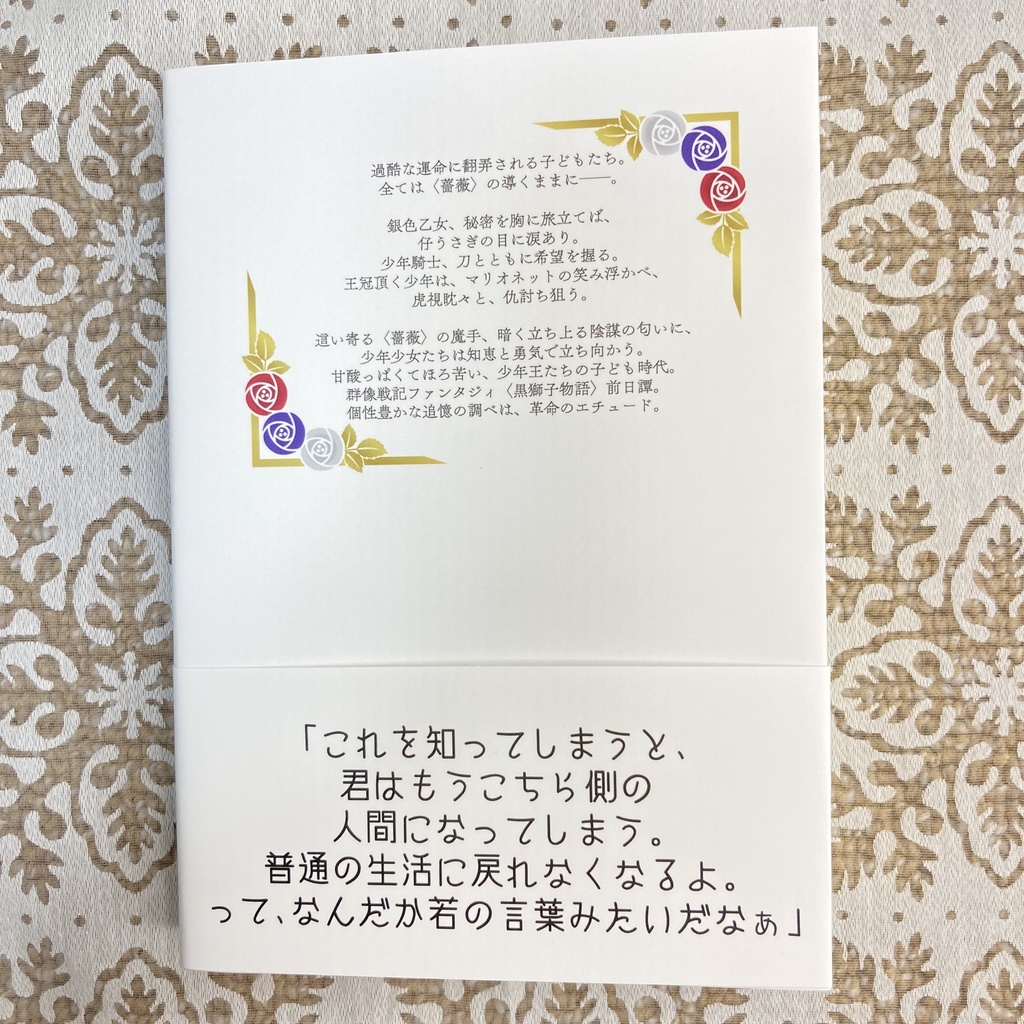 過酷な運命に翻弄される子どもたち。
全ては〈薔薇〉の導くままに――。
銀色乙女、秘密を胸に旅立てば、
仔うさぎの目に涙あり。
少年騎士、刀とともに希望を握る。
王冠頂く少年は、マリオネットの笑み浮かべ、
虎視眈々と、仇討ち狙う。
這い寄る〈薔薇〉の魔手、暗く立ち上る陰謀の匂いに、
少年少女たちは知恵と勇気で立ち向かう。
甘酸っぱくてほろ苦い、少年王たちの子ども時代。
群像戦記ファンタジィ〈黒獅子物語〉前日譚。
個性豊かな追憶の調べは、革命のエチュード。
「これを知ってしまうと、
君はもうこちら側の
人間になってしまう。
普通の生活に戻れなくなるよ。
って、なんだか若の言葉みたいだなぁ」